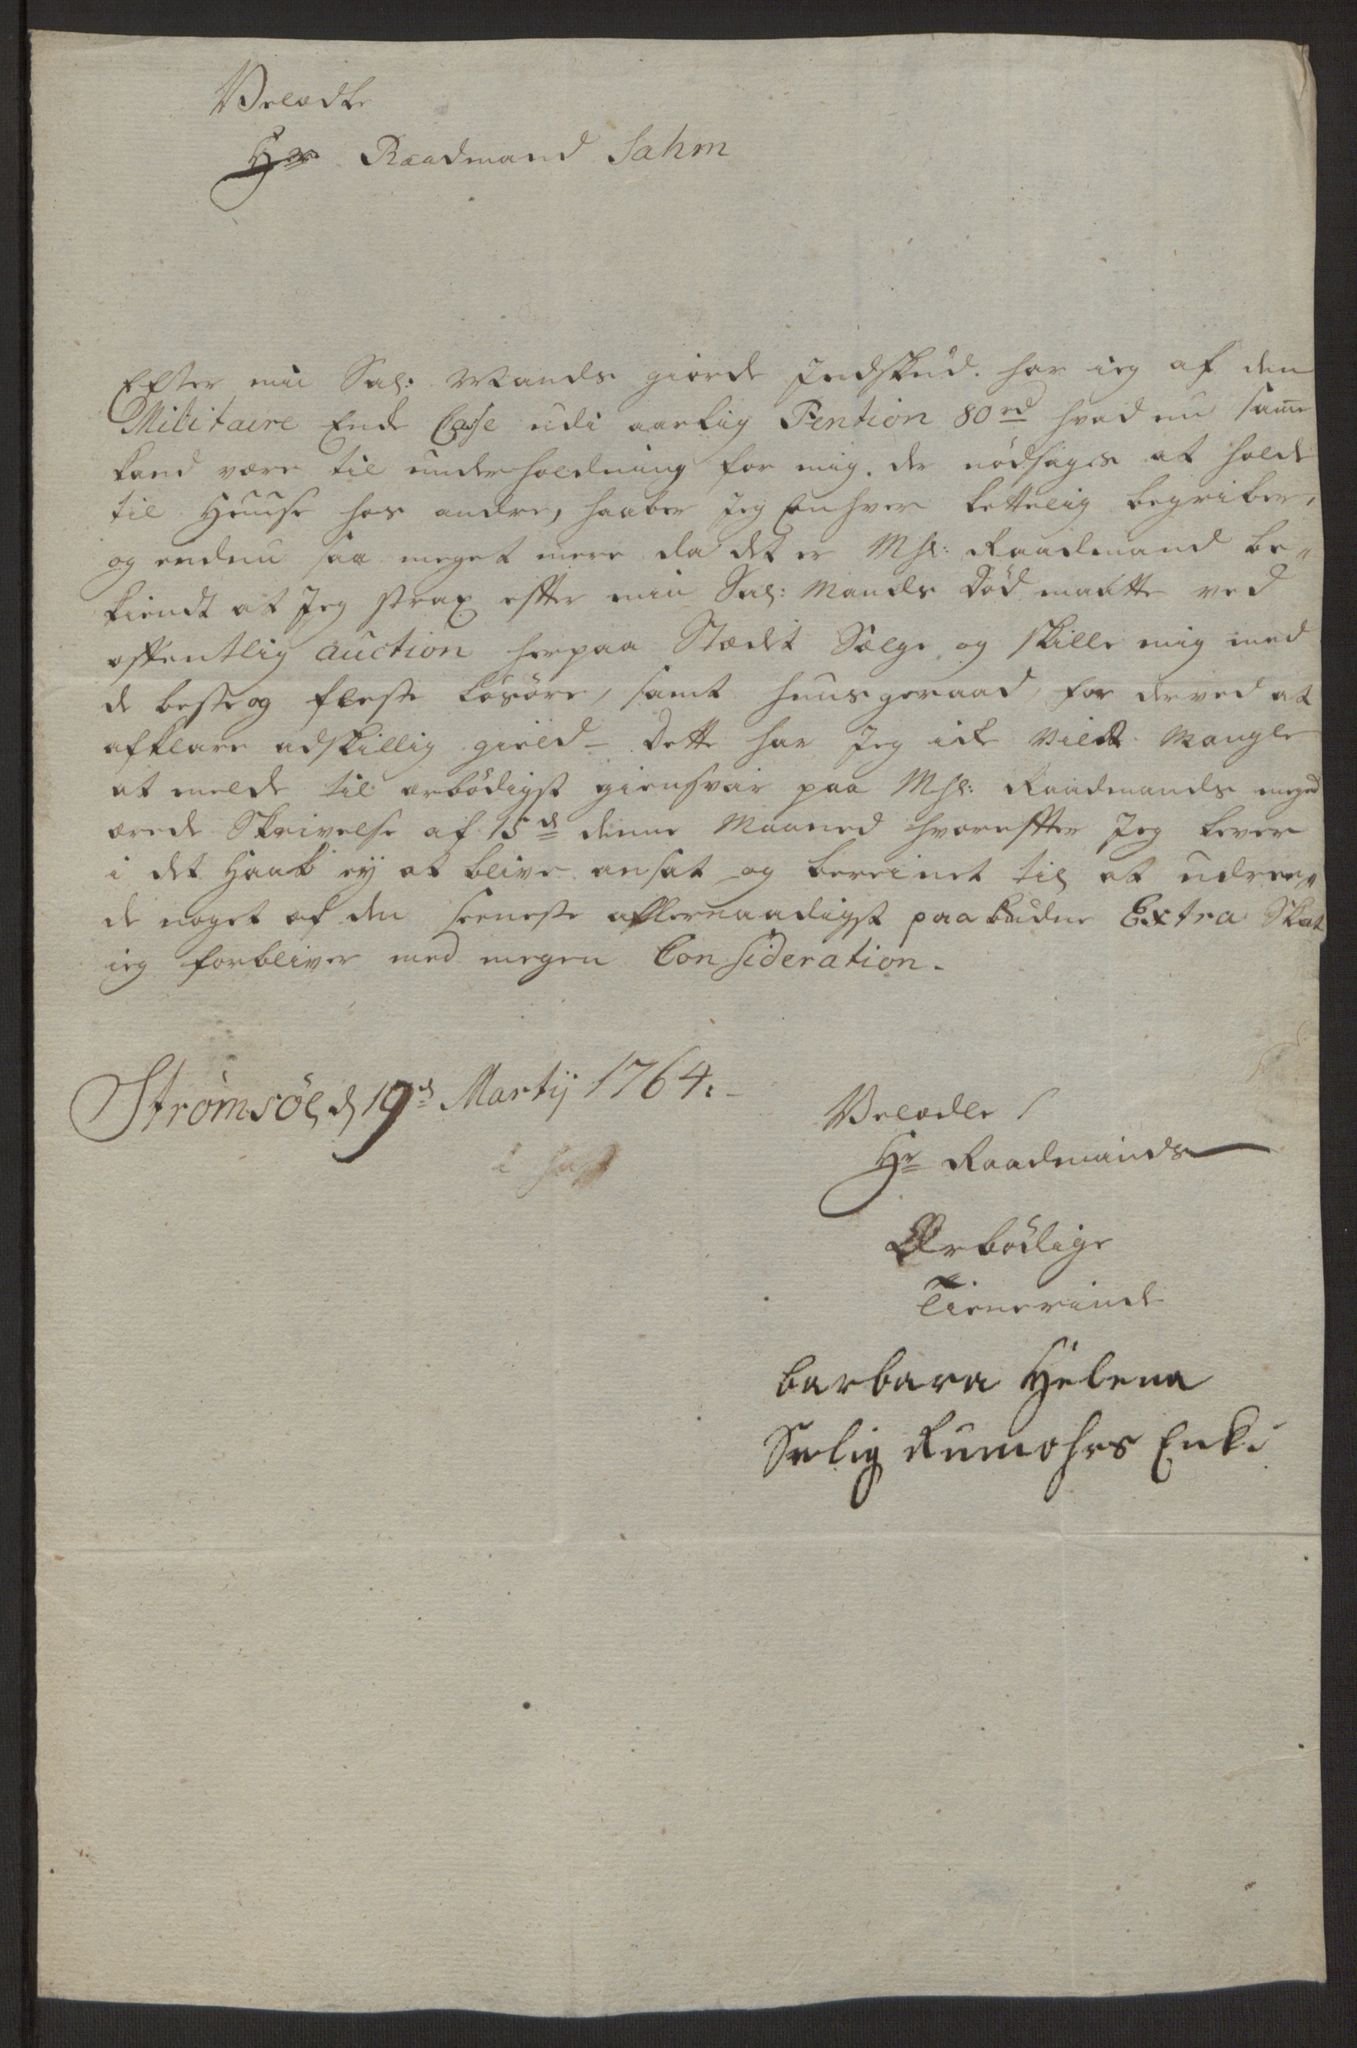 Velædle
Hr Raadmand Sahm
Efter min Sal: Mands giorde Indskud. har ieg af den
Militaire Enke Casse udi aarlig Pention 80 rd hvad nu samme
kand være til underholdning for mig. der nødsages at holde
til Huuse hos andre, haaber Jeg Enhver lettelig begriber,
og endnu saa meget mere da det er MHl: Raadmand be„
kiendt at Jeg strax efter min Sal: Mands Død maatte ved
offentlig auction herpaa Stædet Sælge og skille mig med
de beste og fleste Løsøre, samt huusgeraad, for derved at
afklare adskillig gield – Dette har Jeg ick vildt Mangle
at melde til ærbødigst giensvar paa MHl: Raadmands meged
ærede Skrivelse af 15de denne Maaned hvoreffter Jeg lever
i det Haab ey at blive ansat og bereinet til at udree„
de noget af den seeneste allernaadigst paabudne Extra Skat
ieg forbliver med megen Consideration.
Strømsöe d 19d Martij 1764:
Velædle
Hr Raadmands
Ærbødige
Tienerinde
barbara Helena
Salig Rumohrs Enke